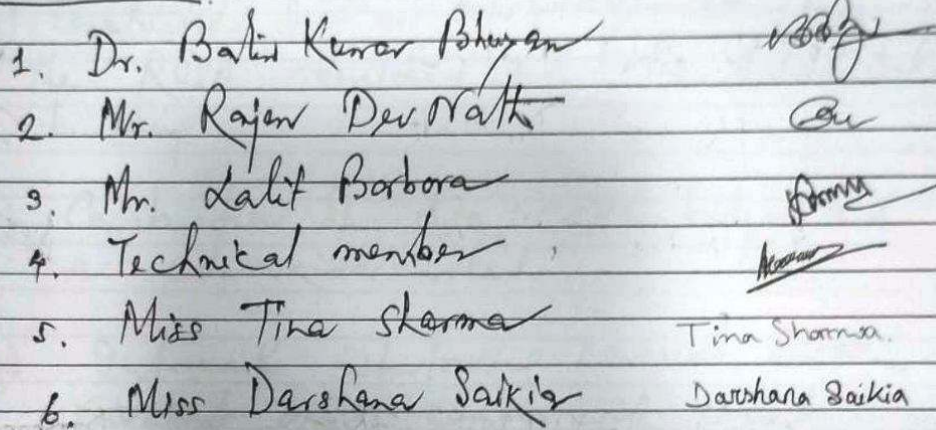 1. Dr. Balin Kumar Bhuyan
2. Mr. Rajen Dev Nath
3. Mr. Lalit Borbora
4. Technical member
5. Miss Tina Sharma Tina Sharma.
6. Miss Darshana Saikia Darshana Saikia